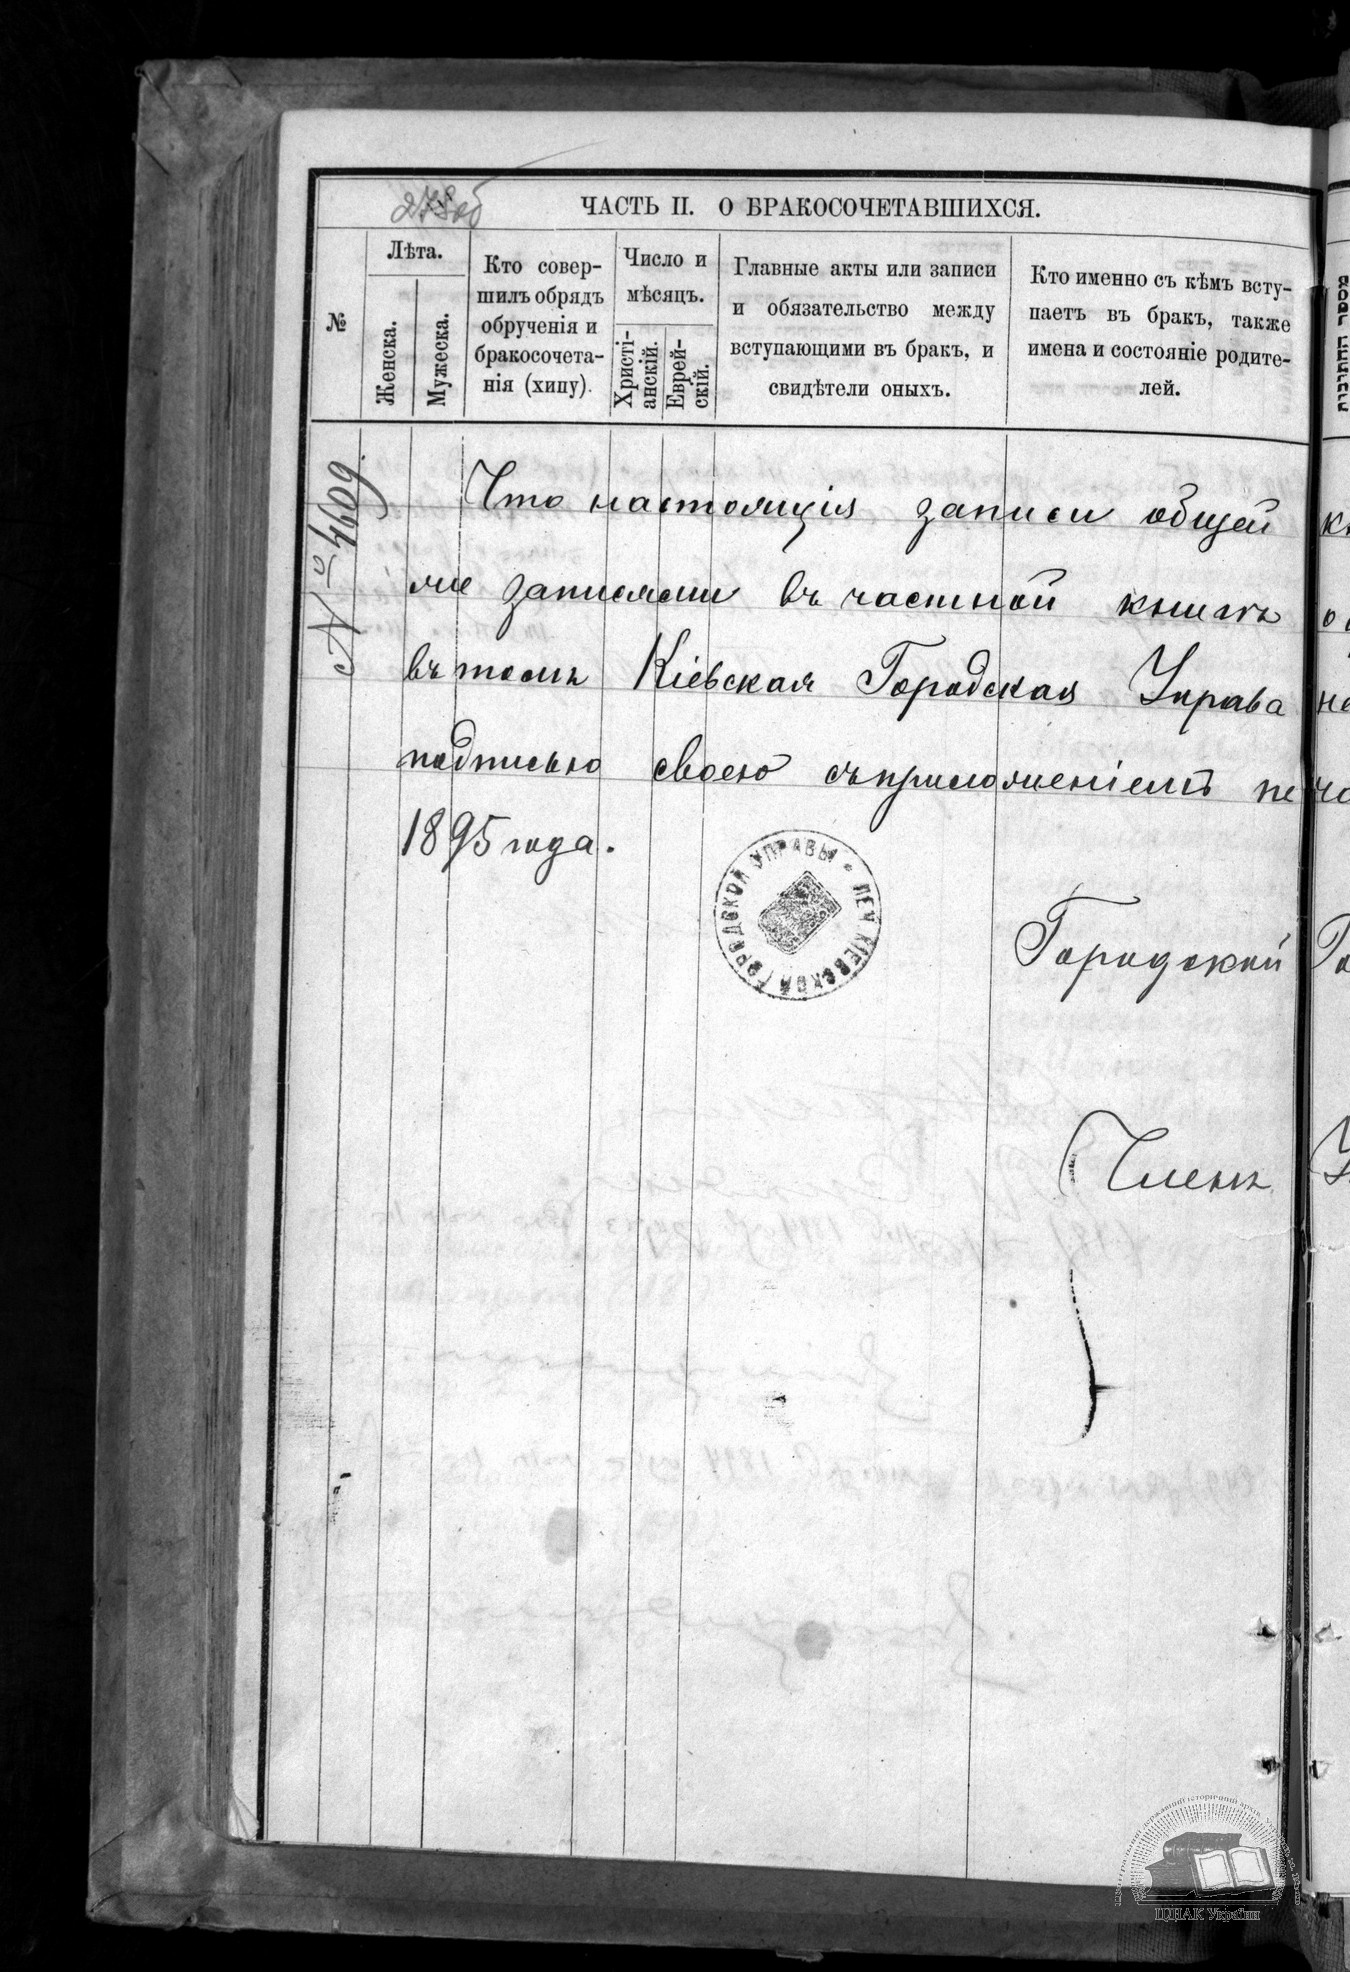 278об
ЧАСТЬ II. О БРАКОСОЧЕТАВШИХСЯ.
№
Лѣта.
Женска.
Мужеска.
Кто совер-
шилъ обрядъ
обрученія и
бракосочета-
нія (хипу).
Число и
мѣсяцъ.
Христі-
анскій.
Еврей-
скій.
Главные акты или записи
и обязательство между
вступающими въ бракъ, и
свидѣтели оныхъ.
Кто именно съ кѣмъ всту-
паетъ въ бракъ, также
имена и состояніе родите-
лей.
№ 4609.
Что настоящія записи общей
ми записями въ частной книгѣ
въ томъ Кіевская Городская Управа
подписью своею съ приложеніемъ печа
1895 года.
ПЕЧ. КІЕВСКОЙ ГОРОДСКОЙ УПРАВЫ
Городской Го
Членъ У
ЦДІАК України